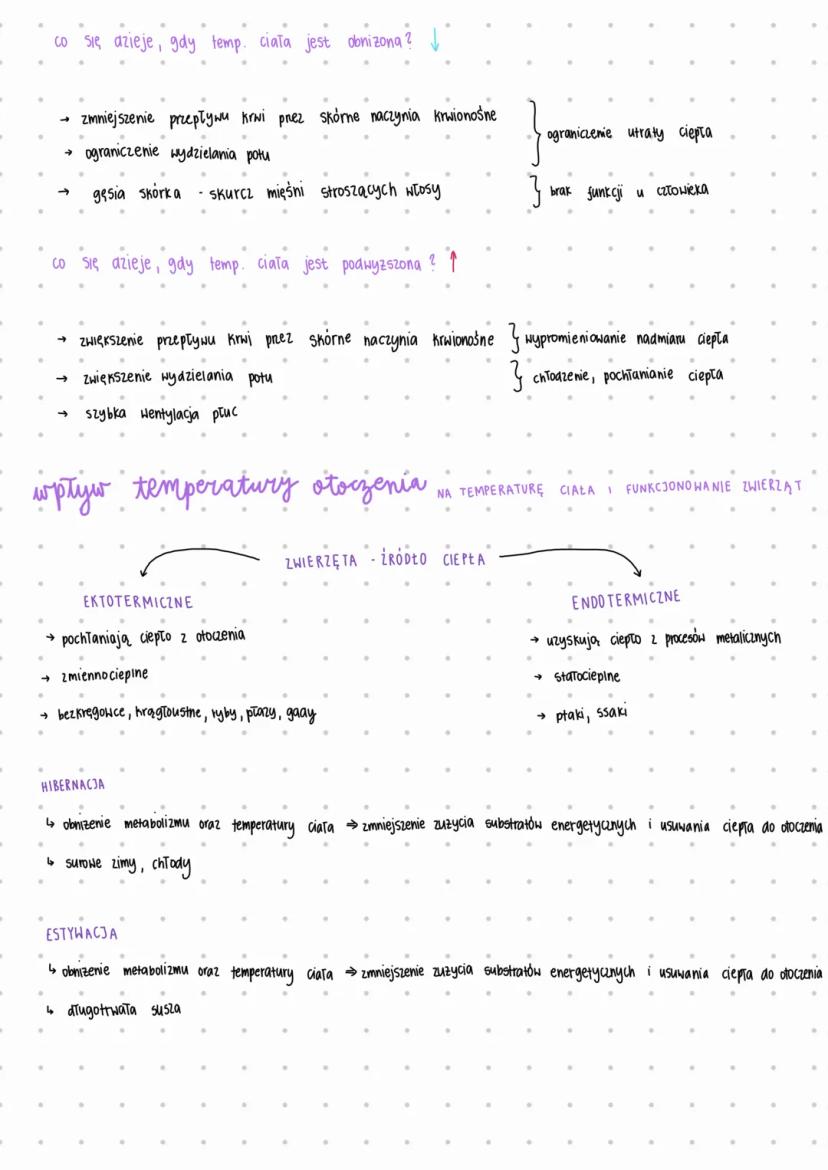 co się dzieje, gdy temp. ciała jest obniżona? ↓
→ zmniejszenie przepływu krwi przez skórne naczynia krwionośne
→ ograniczenie wydzielania potu
} ograniczenie utraty ciepła
→ gęsia skórka - skurcz mięśni stroszących włosy } brak funkcji u człowieka
co się dzieje, gdy temp. ciała jest podwyższona? ↑
→ zwiększenie przepływu krwi przez skórne naczynia krwionośne } wypromieniowanie nadmiaru ciepła
→ zwiększenie wydzielania potu } chłodzenie, pochłanianie ciepła
→ szybka wentylacja płuc
wpływ temperatury otoczenia NA TEMPERATURĘ CIAŁA I FUNKCJONOWANIE ZWIERZĄT
ZWIERZĘTA - ŹRÓDŁO CIEPŁA
EKTOTERMICZNE
→ pochłaniają ciepło z otoczenia
→ zmiennocieplne
→ bezkręgowce, krągłouste, ryby, płazy, gady
ENDOTERMICZNE
→ uzyskują ciepło z procesów metalicznych
→ stałocieplne
→ ptaki, ssaki
HIBERNACJA
↳ obniżenie metabolizmu oraz temperatury ciała ⇒ zmniejszenie zużycia substratów energetycznych i usuwania ciepła do otoczenia
↳ surowe zimy, chłody
ESTYWACJA
↳ obniżenie metabolizmu oraz temperatury ciała ⇒ zmniejszenie zużycia substratów energetycznych i usuwania ciepła do otoczenia
↳ długotrwała susza